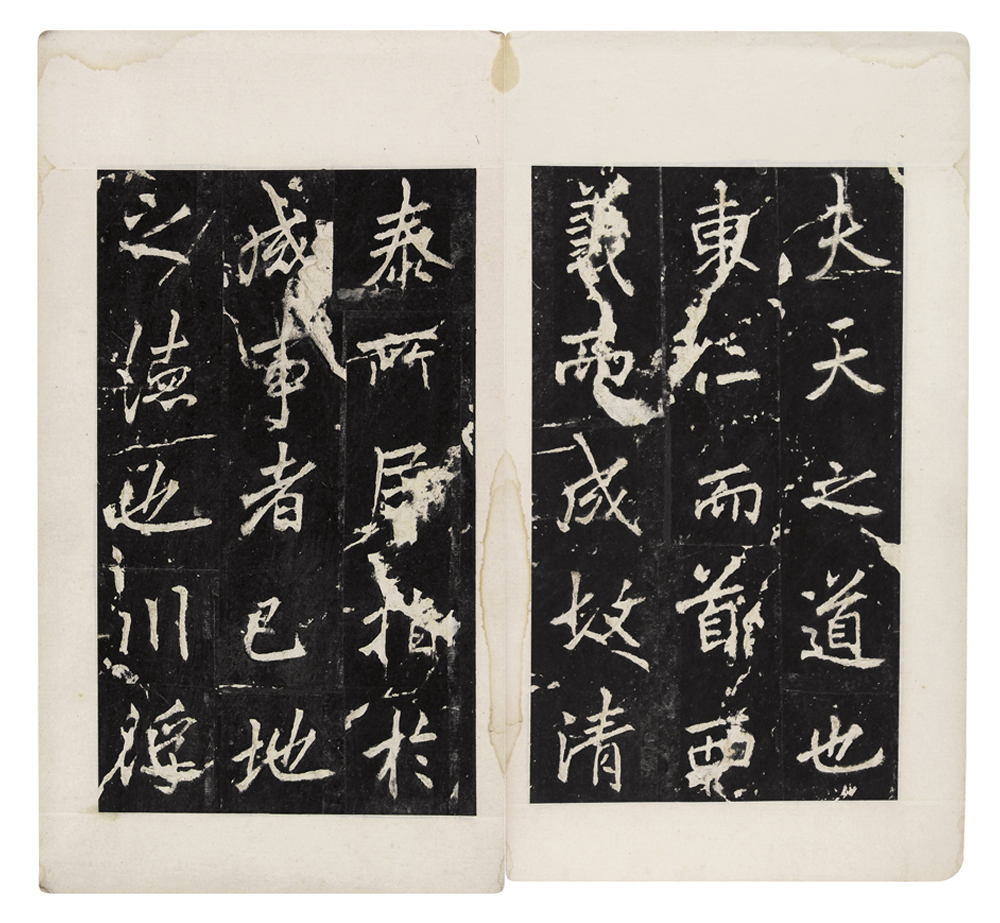 夫天之道也
東仁而首西
義而成故清
泰所居指於
成事者已地
之德也川浮